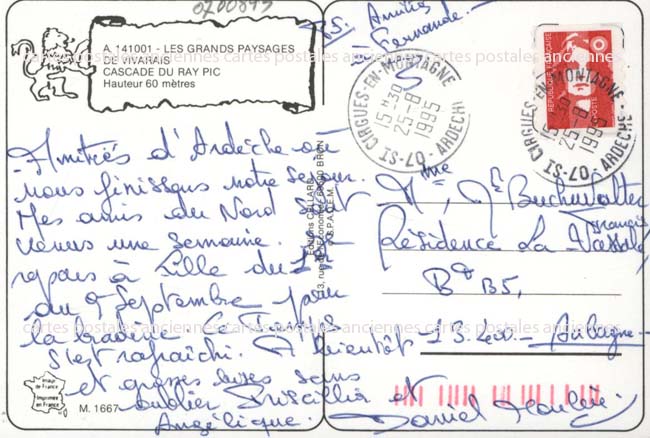 0700893
A 141001 - LES GRANDS PAYSAGES
DE VIVARAIS
CASCADE DU RAY PIC
Hauteur 60 mètres
PS: Amitiés
à Fernande.
ST-CIRGUES-EN-MONTAGNE
15H30
25-8
1995
07-ARDECHE
RÉPUBLIQUE FRANÇAISE
LA POSTE
ST-CIRGUES-EN-MONTAGNE
15H30
25-8
1995
07-ARDECHE
cartes postales anciennes cartes postales anciennes cartes postales anciennes
Amitiés d'Ardèche où
nous finissons notre séjour.
Mes amis du Nord sont
venus une semaine. Je
repars à Lille du 1er
au 9 Septembre pour
la braderie. Le Temps
s'est rafraîchi. A bientôt
et grosses bises sans
oublier Priscillia et
Angélique.
Daniel
Editions CELLARD
69500 BRON
Mme
Buchwalter
François
Résidence La
Bt B5,
13.400 - Aubagne -
cartes postales anciennes cartes postales anciennes cartes postales anciennes
Image de France
Imprimée en France
M. 1667